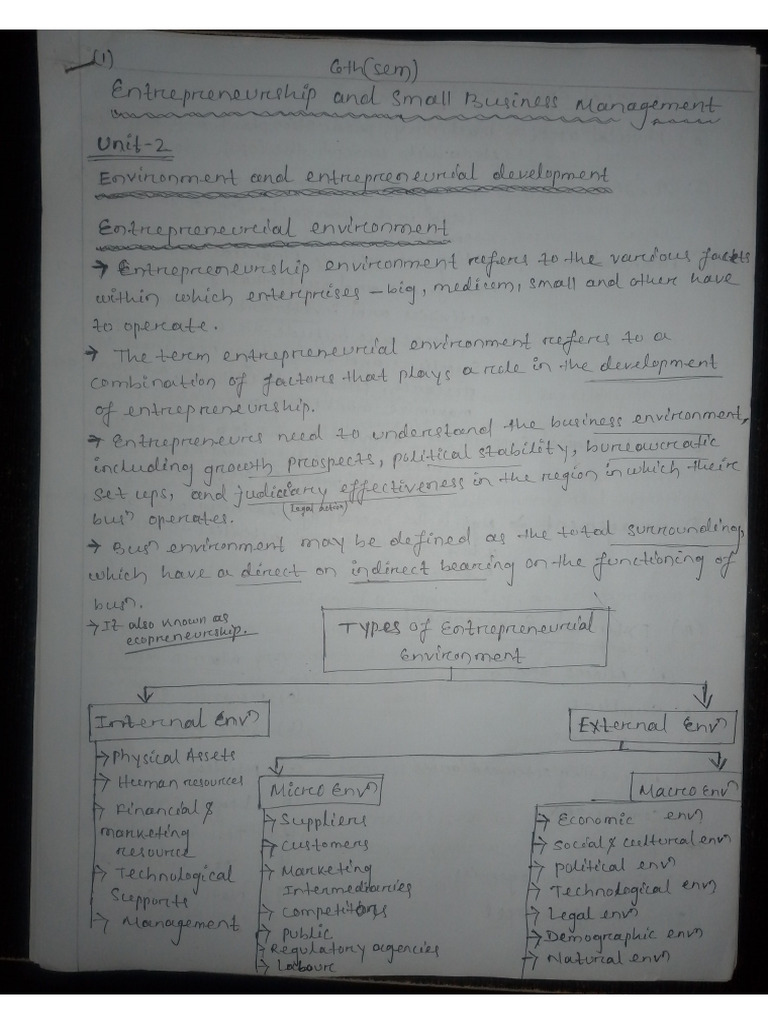 (1)
6th(sem)
Entrepreneurship and Small Business Management
Unit-2
Environment and entrepreneurial development
Entrepreneurial environment
→ Entrepreneurship environment refers to the various facets
within which enterprises - big, medium, small and other have
to operate.
→ The term entrepreneurial environment refers to a
combination of factors that plays a role in the development
of entrepreneurship.
→ Entrepreneurs need to understand the business environment,
including growth prospects, political stability, bureaucratic
set ups, and judiciary effectiveness in the region in which their
(legal action)
busn operates.
→ Busn environment may be defined as the total surrounding,
which have a direct on indirect bearing on the functioning of
busn.
→ It also known as
ecopreneurship.
Types of Entrepreneurial
Environment
Internal Envn
External Envn
→ Physical Assets
→ Human resources
→ Financial &
marketing
resource
→ Technological
Supports
→ Management
Micro Envn
→ Suppliers
→ Customers
→ Marketing
Intermediaries
→ Competitors
→ public
→ Regulatory agencies
→ Labour
Macro Envn
→ Economic envn
→ Social & cultural envn
→ political envn
→ Technological envn
→ Legal envn
→ Demographic envn
→ Natural envn